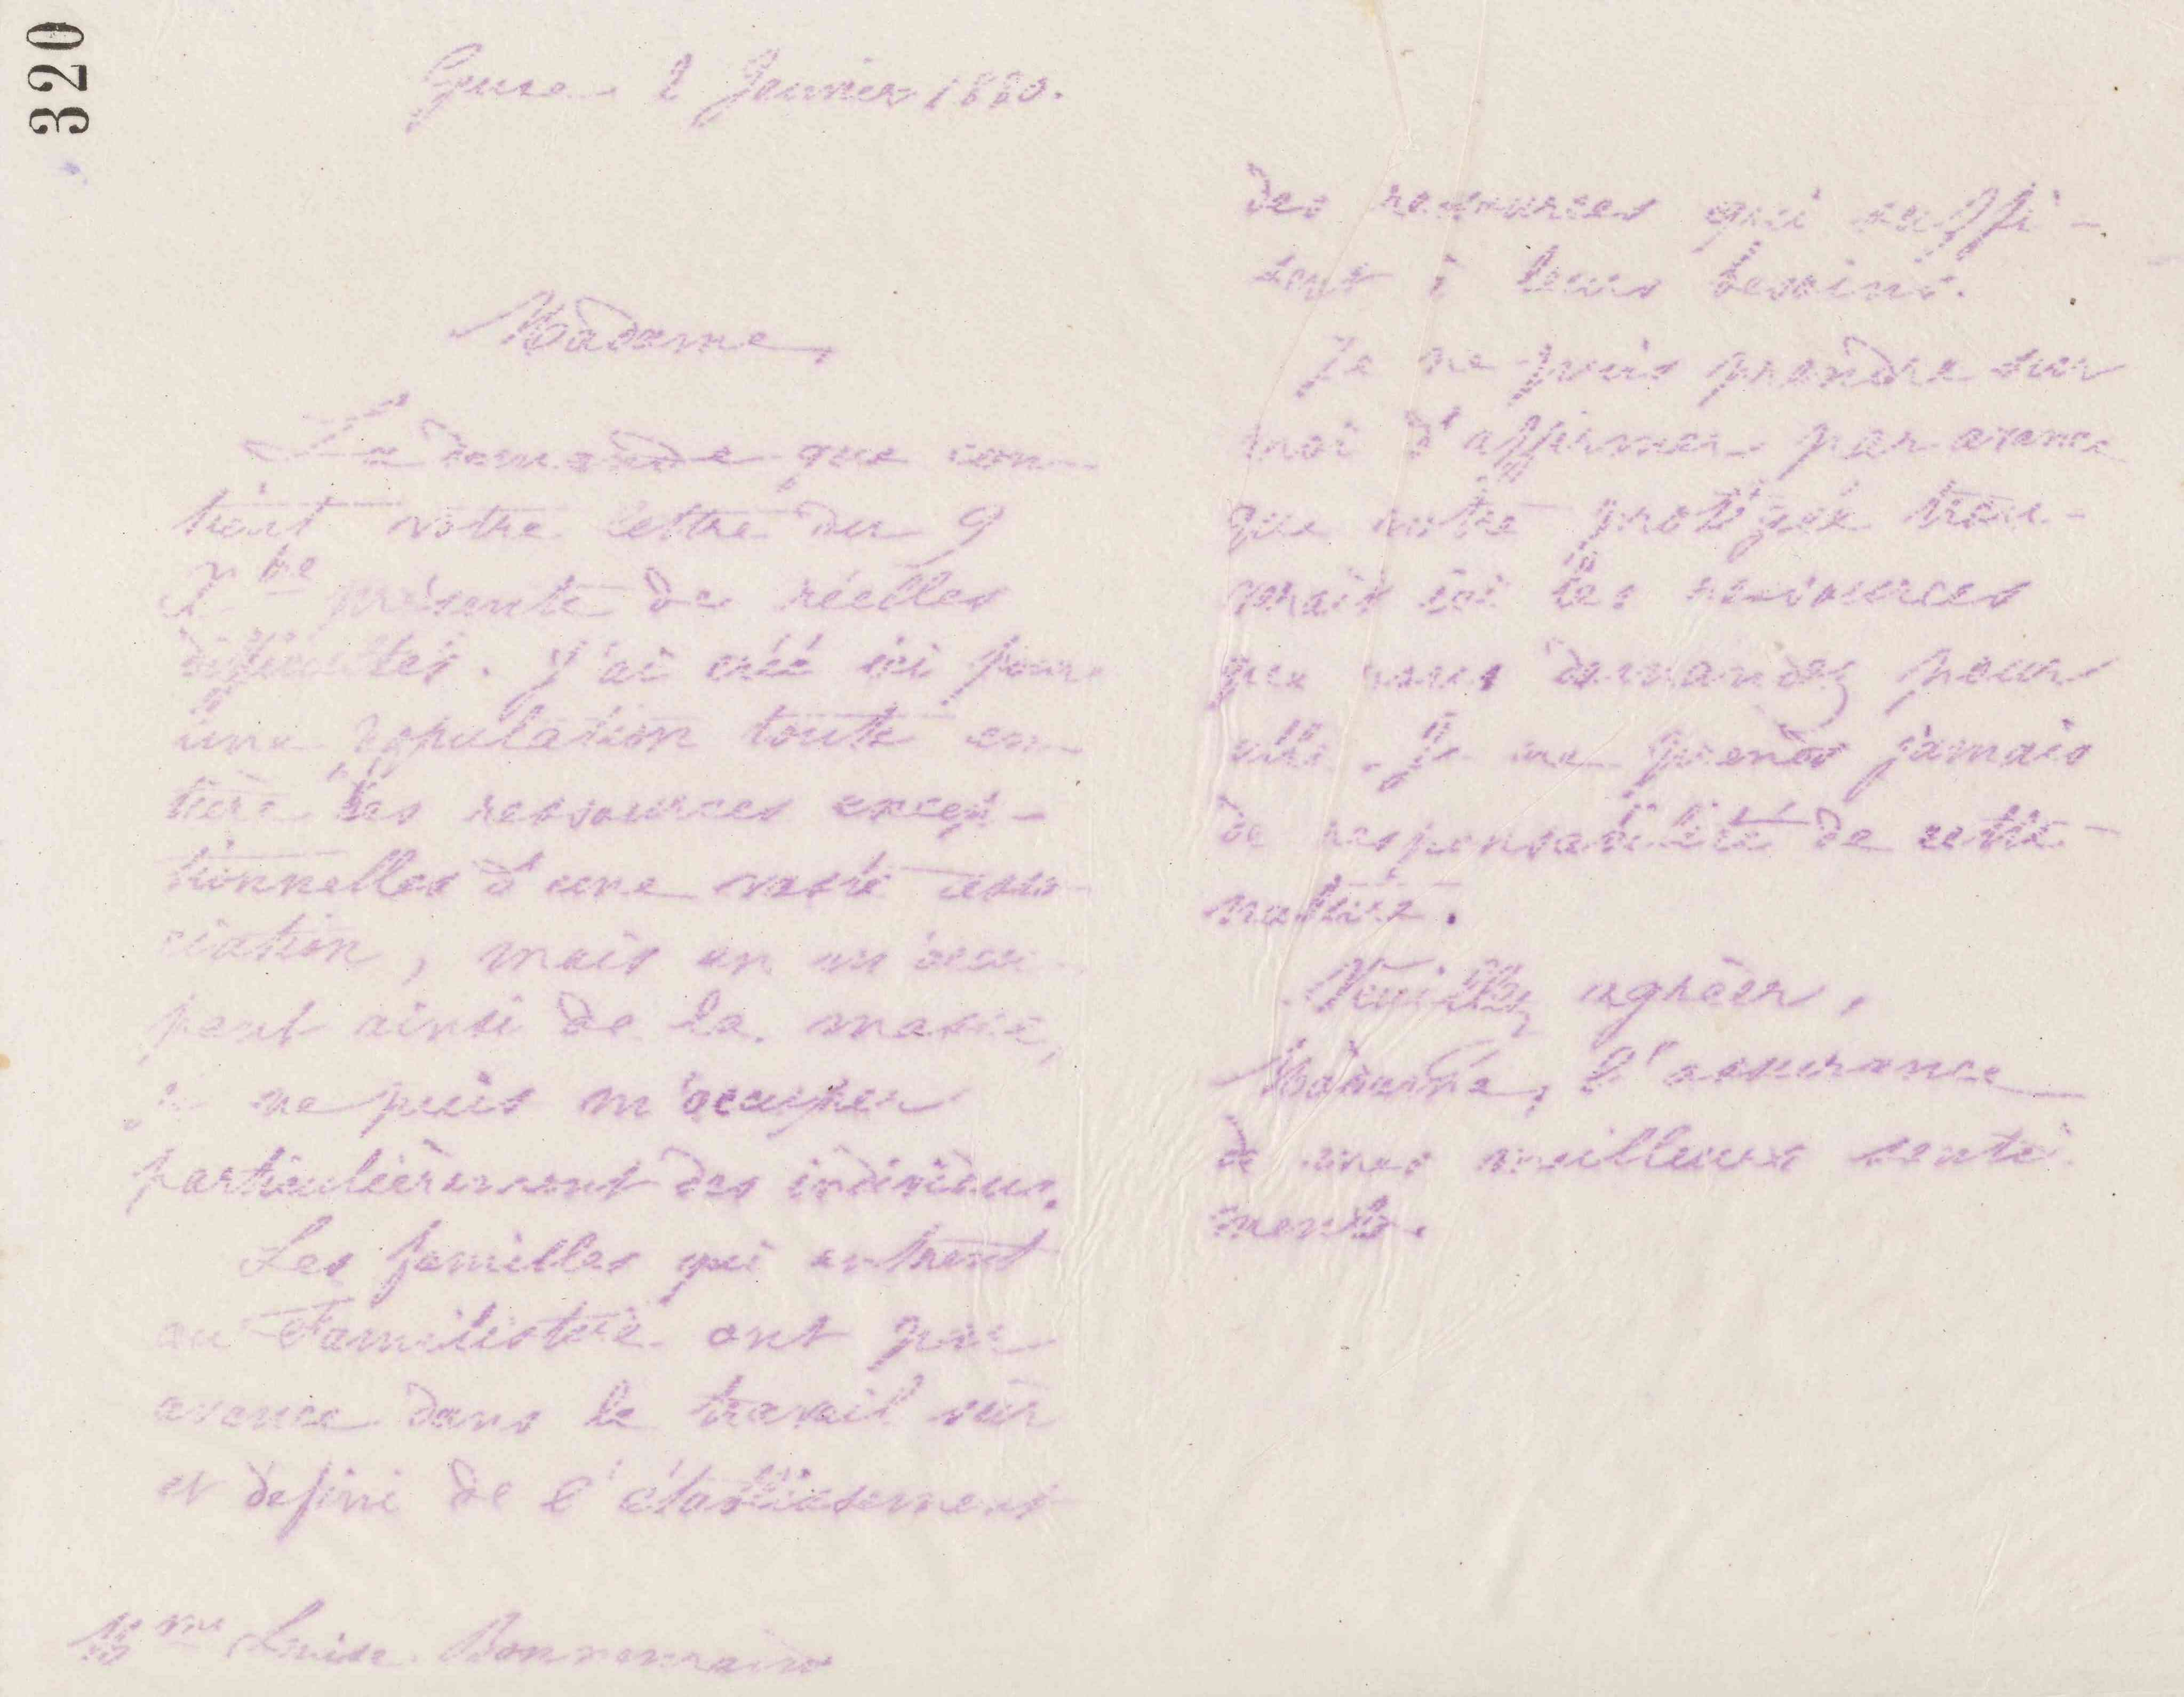 320
Guise 2 Janvier 1880.
Madame,
La demande que con-
tient votre lettre du 9
Xbre présente de réelles
difficultés. J'ai créé ici pour
une population toute en-
tière les ressources excep-
tionnelles d'une vaste asso-
ciation, mais en m'occu-
pant ainsi de la masse,
je ne puis m'occuper
particulièrement des individus.
Les familles qui entrent
au Familistère ont par
avance dans le travail sûr
et défini de l'établissement
Mme Louise Bonnemain
des ressources qui suffi-
sent à leurs besoins.
Je ne puis prendre sur
moi d'affirmer par avance
que votre protégée trou-
verait ici les ressources
que vous demandez pour
elle. Je ne prends jamais
de responsabilité de cette
nature.
Veuillez agréer,
Madame, l'assurance
de mes meilleurs senti
ments.